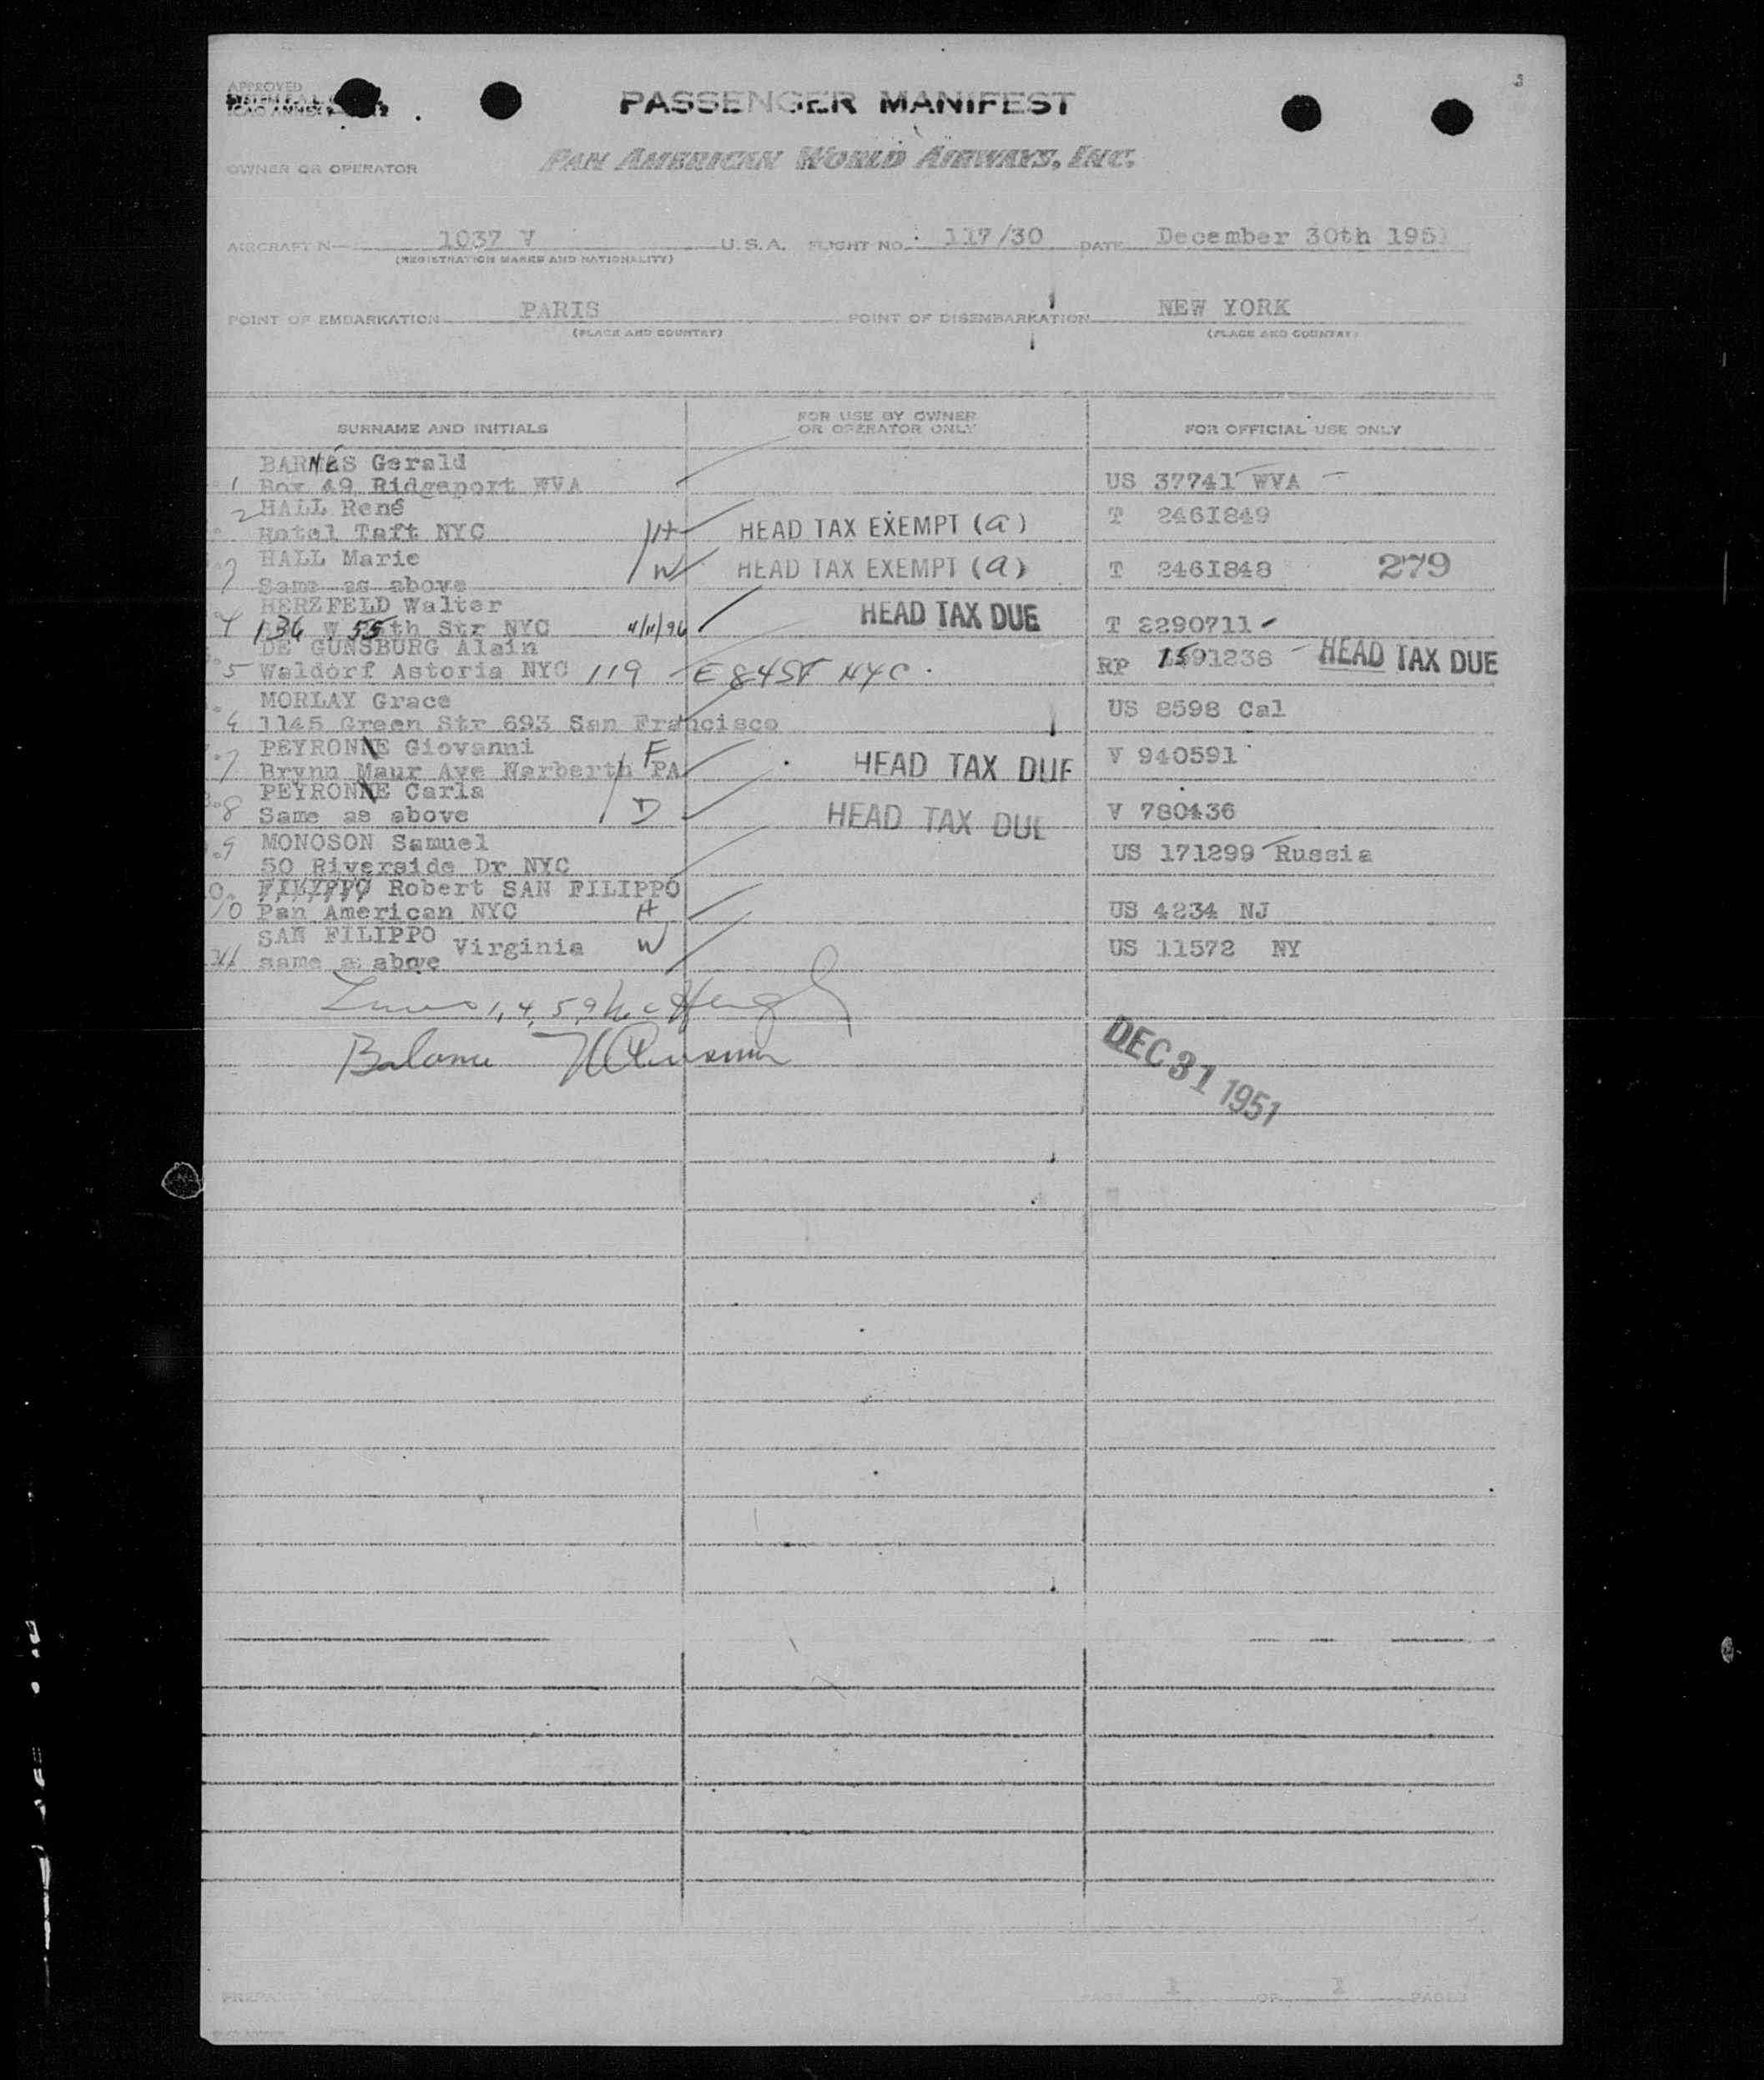 APPROVED
ICAO ANNEX 9
PASSENGER MANIFEST
OWNER OR OPERATOR PAN AMERICAN WORLD AIRWAYS, INC.
AIRCRAFT N— 1037 V U.S.A. FLIGHT NO. 117/30 DATE December 30th 1951
(REGISTRATION MARKS AND NATIONALITY)
POINT OF EMBARKATION PARIS POINT OF DISEMBARKATION NEW YORK
(PLACE AND COUNTRY) (PLACE AND COUNTRY)
SURNAME AND INITIALS FOR USE BY OWNER OR OPERATOR ONLY FOR OFFICIAL USE ONLY
BARNES Gerald
1 Box 49 Ridgeport WVA US 37741 WVA
2 HALL René T 2461849
Hotel Taft NYC H HEAD TAX EXEMPT (a)
HALL Marie W HEAD TAX EXEMPT (a) T 2461848 279
3 Same as above
HERZFELD Walter HEAD TAX DUE
4 136 W 55th Str NYC 4/11/96 T 2290711
DE GUNSBURG Alain
5 Waldorf Astoria NYC 119 E 84 ST NYC. RP 1591238 HEAD TAX DUE
MORLAY Grace US 8598 Cal
6 1145 Green Str 693 San Francisco
PEYRONE Giovanni F V 940591
7 Brynn Maur Ave Narberth PA HEAD TAX DUE
PEYRONE Carla
8 Same as above D HEAD TAX DUE V 780436
9 MONOSON Samuel US 171299 Russia
50 Riverside Dr NYC
FILIPPO Robert SAN FILIPPO
10 Pan American NYC H US 4234 NJ
SAN FILIPPO Virginia W US 11572 NY
11 same as above
1, 4, 5, 9
Balance
DEC 31 1951
PAGE 1 OF 1 PAGES